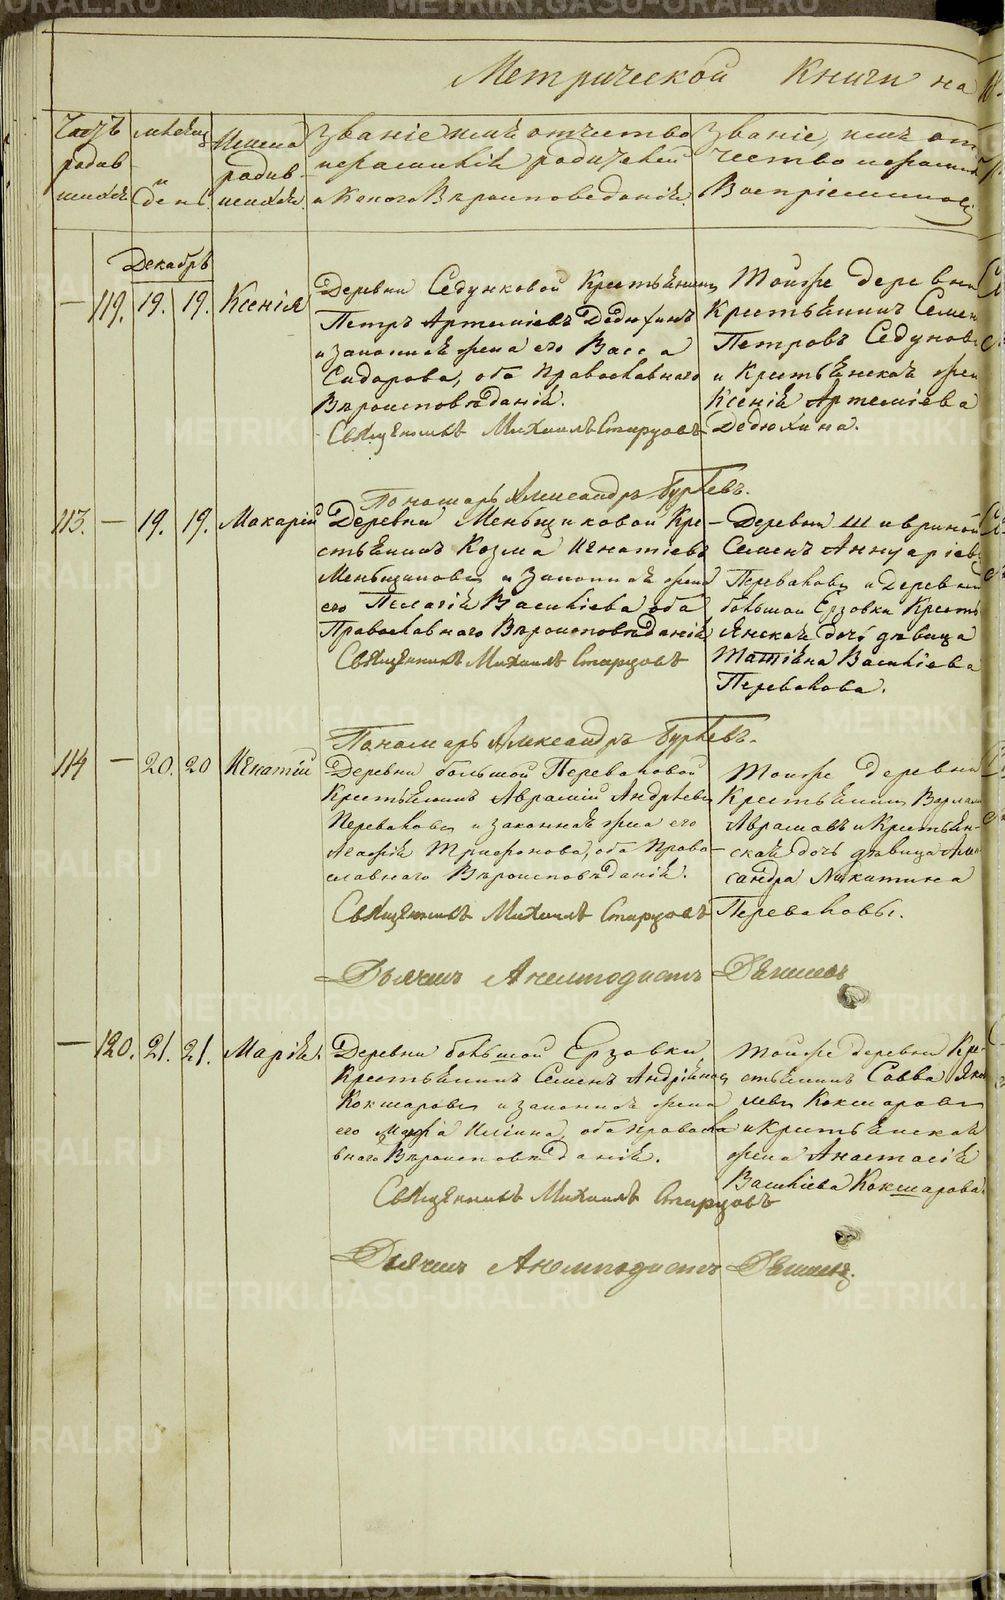 Метрической Книги на
Счетъ родив шихся
мѣсяц и день
Имена родив шихся
Званіе имя отчество
и фамилія родителей
и Какого Вѣроисповеданія.
Званіе, имя от
чество и фамил
Воспріемников
Декабрь
— 119. 19. 19. Ксенія
Деревни Седунковой Крестьянинъ
Петръ Артеміевъ Дедюхинъ
и законная жена его Васса
Сидорова, оба Православнаго
Вѣроисповѣданія.
Священникъ Михаилъ Старцовъ
Пономарь Александръ Буртевъ.
Тойже деревни
Крестьянинъ Семен
Петровъ Седунов
и Крестьянская жен
Ксенія Артеміева
Дедюхина.
113. — 19. 19. Макарій
Деревни Меньщиковой Кре-
стьянинъ Козма Игнатіевъ
Меньщиковъ и Законная жена
его Пелагія Васильева оба
Православнаго Вѣроисповѣданія
Священникъ Михаилъ Старцовъ
Пономарь Александръ Буртевъ.
Деревни Шавриной
Семенъ Аннуаріевъ
Переваловъ и деревни
большой Ерзовки Кресть
янская дочь дѣвица
Татіяна Васильева
Перевалова.
114 — 20. 20 Игнатій
Деревни большой Переваловой
Крестьянинъ Аврамій Андрѣевъ
Переваловъ и законная жена его
Агафія Трифонова, оба Право-
славнаго Вѣроисповѣданія.
Священникъ Михаилъ Старцовъ
Дьячекъ Анемподистъ Дягилевъ
Тойже деревни
Крестьянинъ Варлам
Аврамовъ и Крестьян-
ская дочь дѣвица Але
сандра Никитина
Переваловы.
— 120. 21. 21. Марія.
Деревни большой Ерзовки
Крестьянинъ Семенъ Андріяновъ
Кокшаровъ и законная жена
его Марфа Ильина, оба Правосла
внаго Вѣроисповѣданія.
Священникъ Михаилъ Старцовъ
Дьячекъ Анемподистъ
Тойже деревни Кре-
стьянинъ Савва Яков
левъ Кокшаровъ
и Крестьянская
жена Анастасія
Васильева Кокшарова.
METRIKI.GASO-URAL.RU